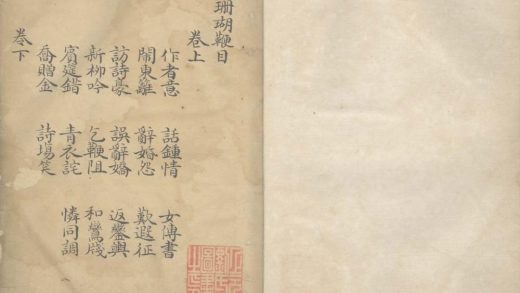 珊瑚鞭目
卷上
作者意 話鍾情 女傳書
鬧東籬 辭婚怨 歎遐征
訪詩豪 誤辭婚 返鑾輿
新柳吟 乞鞭阻 和鸞牋
賓筵錯 青衣詫 憐同調
喬贈金 詩場笑
卷下